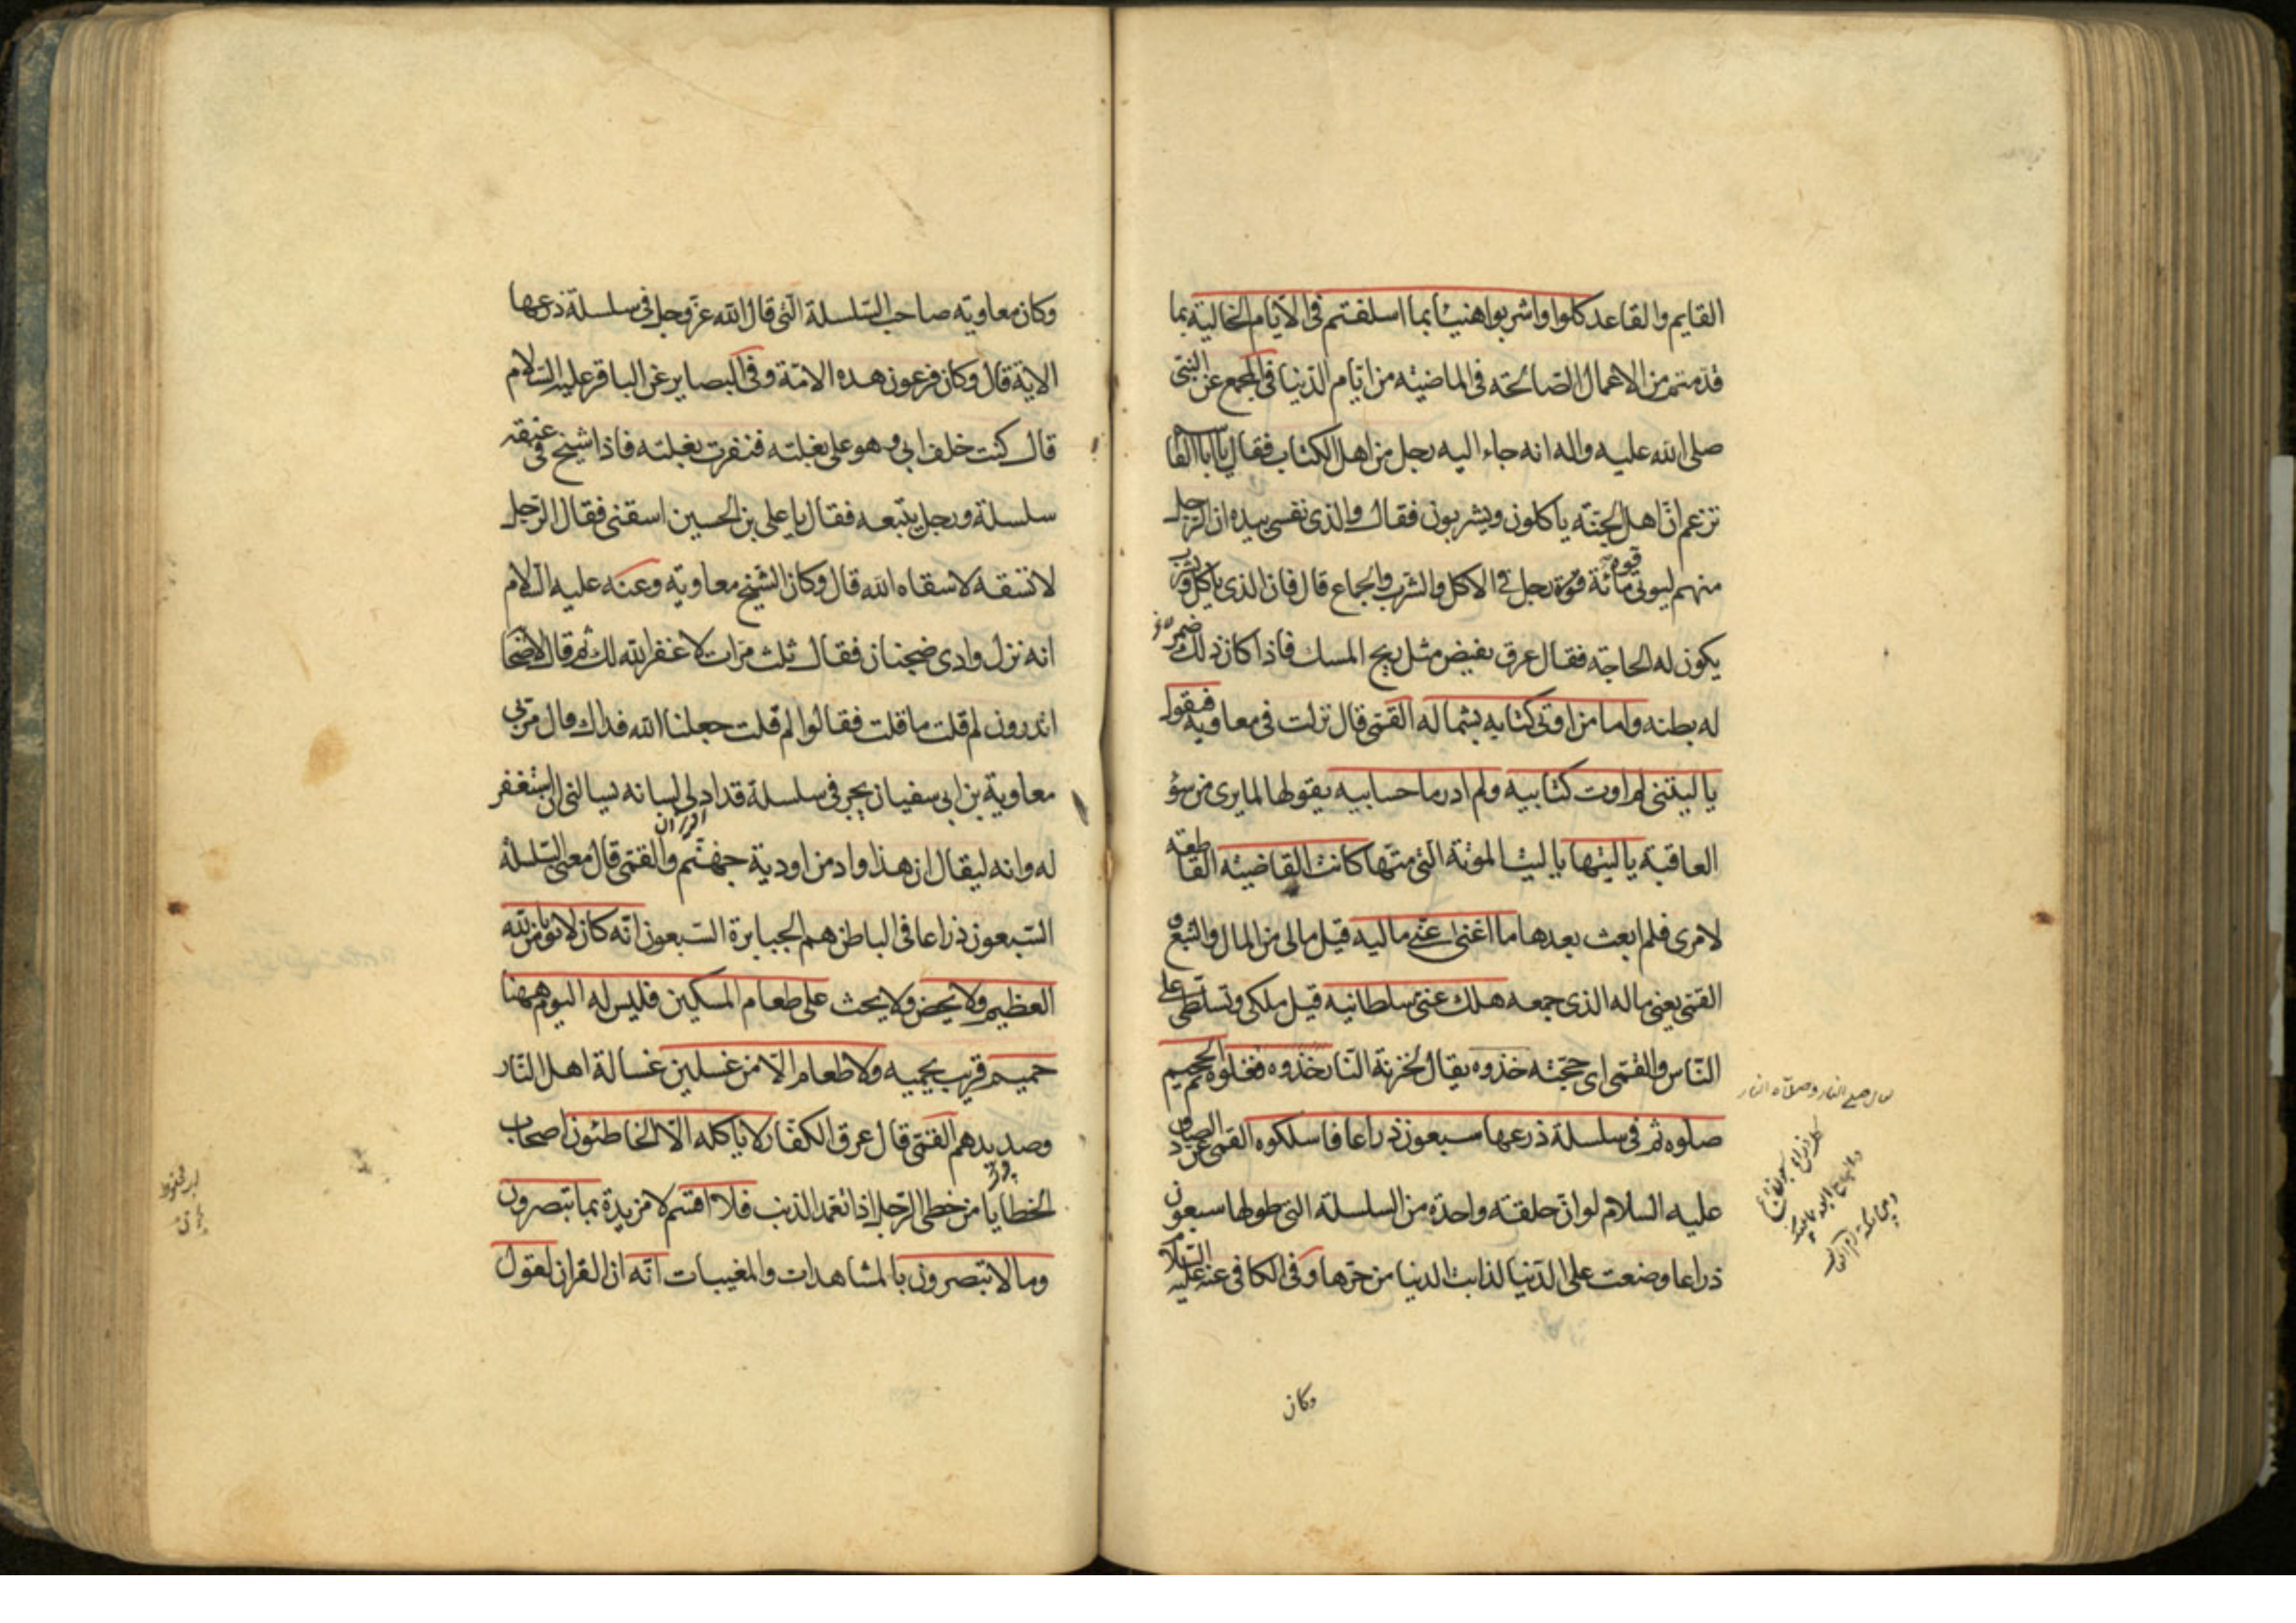 القايم والقاعد كلوا واشربوا هنيئا بما اسلفتم فى الايام الخالية بما
قدمتم من الاعمال الصالحة فى الماضية من ايام الدنيا فى المجمع عن النبى
صلى الله عليه واله انه جاء اليه رجل من اهل الكتاب فقال يا ابا القا
تزعم ان اهل الجنة ياكلون ويشربون فقال والذى نفسى بيده ان الرجل
منهم ليوتى قوة مائة رجل فى الاكل والشرب والجماع قال فان الذى ياكل ويشرب
يكون له الحاجة فقال عرق يفيض مثل ريح المسك فاذا كان ذلك ضمر
له بطنه واما من اوتى كتابه بشماله القمى قال نزلت فى معاوية فيقول
يا ليتنى لم اوت كتابيه ولم ادر ما حسابيه يقولها لما يرى من سؤ
العاقبة يا ليتها يا ليت الموتة التى متها كانت القاضية القاطعة
لامرى فلم ابعث بعدها ما اغنى عنى ماليه قيل مالى من المال والتبع و
القمى يعنى ماله الذى جمعه هلك عنى سلطانيه قيل ملكى وتسلطى على
الناس والقمى اى حجته خذوه يقال لخزنة النار خذوه فغلوه ثم الجحيم
صلوه ثم فى سلسلة ذرعها سبعون ذراعا فاسلكوه القمى عن الصادق
عليه السلام لو ان حلقة واحدة من السلسلة التى طولها سبعون
ذراعا وضعت على الدنيا لذابت الدنيا من حرها وفى الكافى عنه عليه السلام
وكان
وكان معاوية صاحب السلسلة التى قال الله عز وجل فى سلسلة ذرعها
الاية قال وكان فرعون هذه الامة وفى البصاير عن الباقر عليه السلام
قال كنت خلف ابى وهو على بغلته فنفرت بغلته فاذا شيخ فى عنقه
سلسلة ورجل يتبعه فقال يا على بن الحسين اسقنى فقال الرجل
لا تسقه لا سقاه الله قال وكان الشيخ معاوية وعنه عليه السلام
انه نزل وادى ضجنان فقال ثلث مرات لا غفر الله لك ثم قال لاصحابه
اتدرون لم قلت ما قلت فقالوا لم قلت جعلنا الله فداك قال مر بى
معاوية بن ابى سفيان يجر فى سلسلة قد ادلى لسانه يسالنى ان استغفر
له وانه ليقال ان هذا واد من اودية جهنم والقمى قال معنى السلسلة
السبعون ذراعا فى الباطن هم الجبابرة السبعون انه كان لا يؤمن بالله
العظيم ولا يحض ولا يحث على طعام المسكين فليس له اليوم ههنا
حميم قريب يحميه ولا طعام الا من غسلين غسالة اهل النار
وصديدهم القمى قال عرق الكفار لا ياكله الا الخاطئون اصحاب
الخطايا من خطى الرجل اذا تعمد الذنب فلا اقسم لا مزيدة بما تبصرون
وما لا تبصرون بالمشاهدات والمغيبات انه ان القران لقول